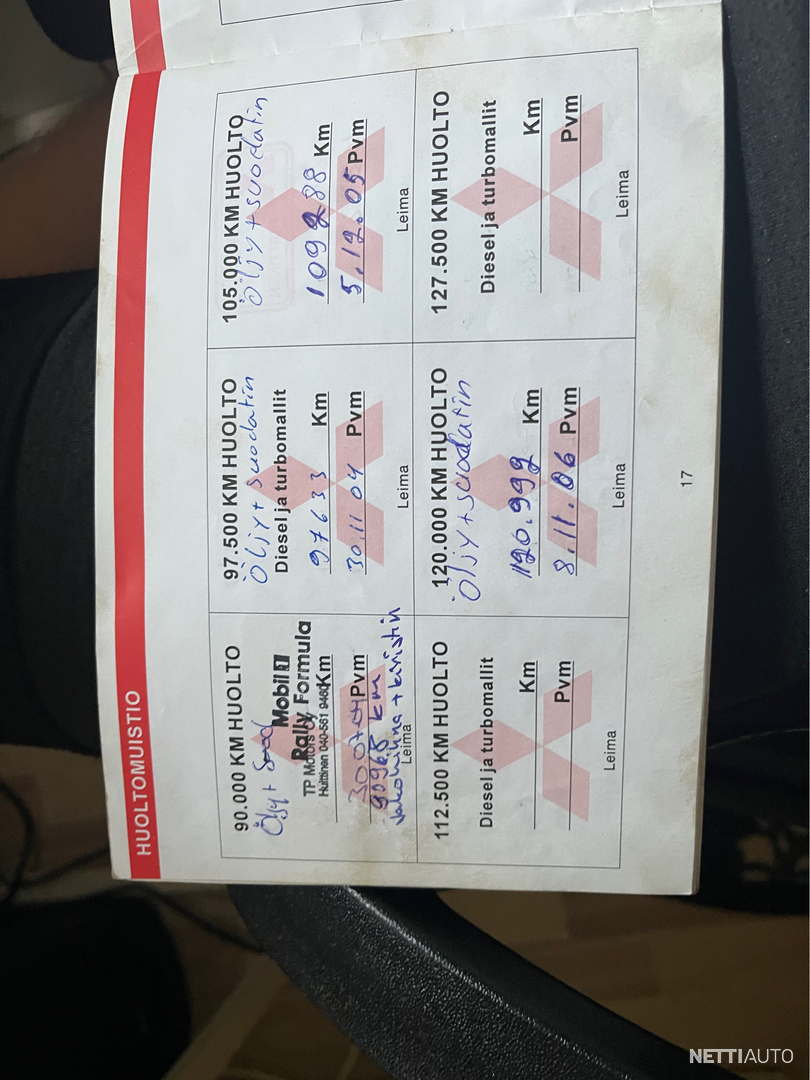 HUOLTOMUISTIO
90.000 KM HUOLTO
Öljy + Suod
Mobil 1
Rally Formula
TP Motors Oy
Huittinen 040-561 9460
Km
300704 Pvm
90968 km
Jakohihna + kiristin
Leima
97.500 KM HUOLTO
Öljy + suodatin
Diesel ja turbomallit
97633 Km
30.11 04 Pvm
Leima
105.000 KM HUOLTO
Öljy + suodatin
109288 Km
5.12.05 Pvm
Leima
112.500 KM HUOLTO
Diesel ja turbomallit
Km
Pvm
Leima
120.000 KM HUOLTO
Öljy + suodatin
120.999 Km
8.11.06 Pvm
Leima
127.500 KM HUOLTO
Diesel ja turbomallit
Km
Pvm
Leima
17
NETTIAUTO